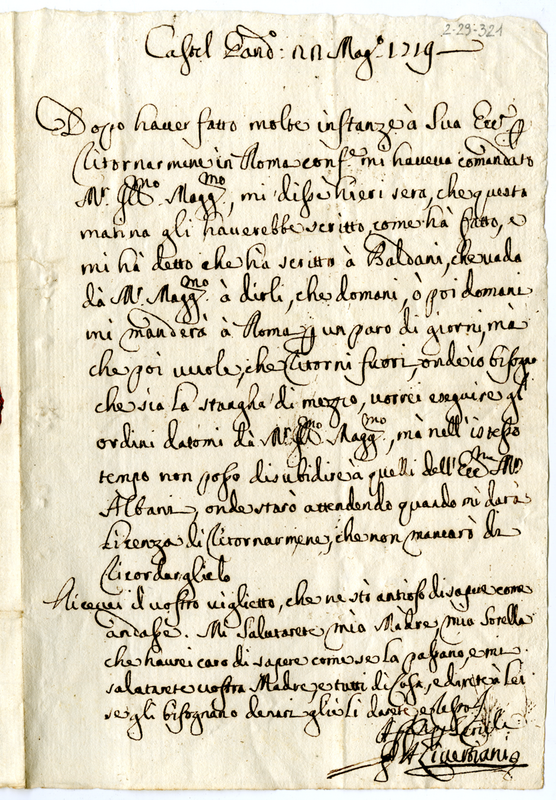 2-29-321
Castel Gand.º: 22 Mag.º 1719
Doppo haver fatto molte instanze à Sua Ecc.ª p
ritornarmene in Roma conf.e mi haveva comandato
Mr. Ill.mo Magg.mo, mi disse hieri sera, che questa
matina gli haverebbe scritto, come hà fatto, e
mi hà detto che hà scritto à Baldani, che vada
dà Mr. Magg.mo à dirli, che domani, ò poi domani
mi manderà à Roma p un paro di giorni, mà
che poi vuole, che ritorni fuori, onde io bisogna
che sia la stangha di mezzo, vorrei eseguire gl'
ordini datomi dà Mr. Ill.mo Magg.mo, mà nell'istesso
tempo non posso disubidire à quelli dell'Ecc.ma Mr.
Albani, onde starò attendendo quando mi darà
licenza di ritornarmene, che non mancarò di
ricordarglielo
Ricevei il vostro viglietto, che ne stò antioso di sapere come
andasse. Mi salutarete mia Madre, mia Sorella
che haurei caro di sapere come se la passano, e mi
salutarete vostra Madre e tutti di Casa, e direte à Lei
se gli bisognano denari glieli darete, e resto